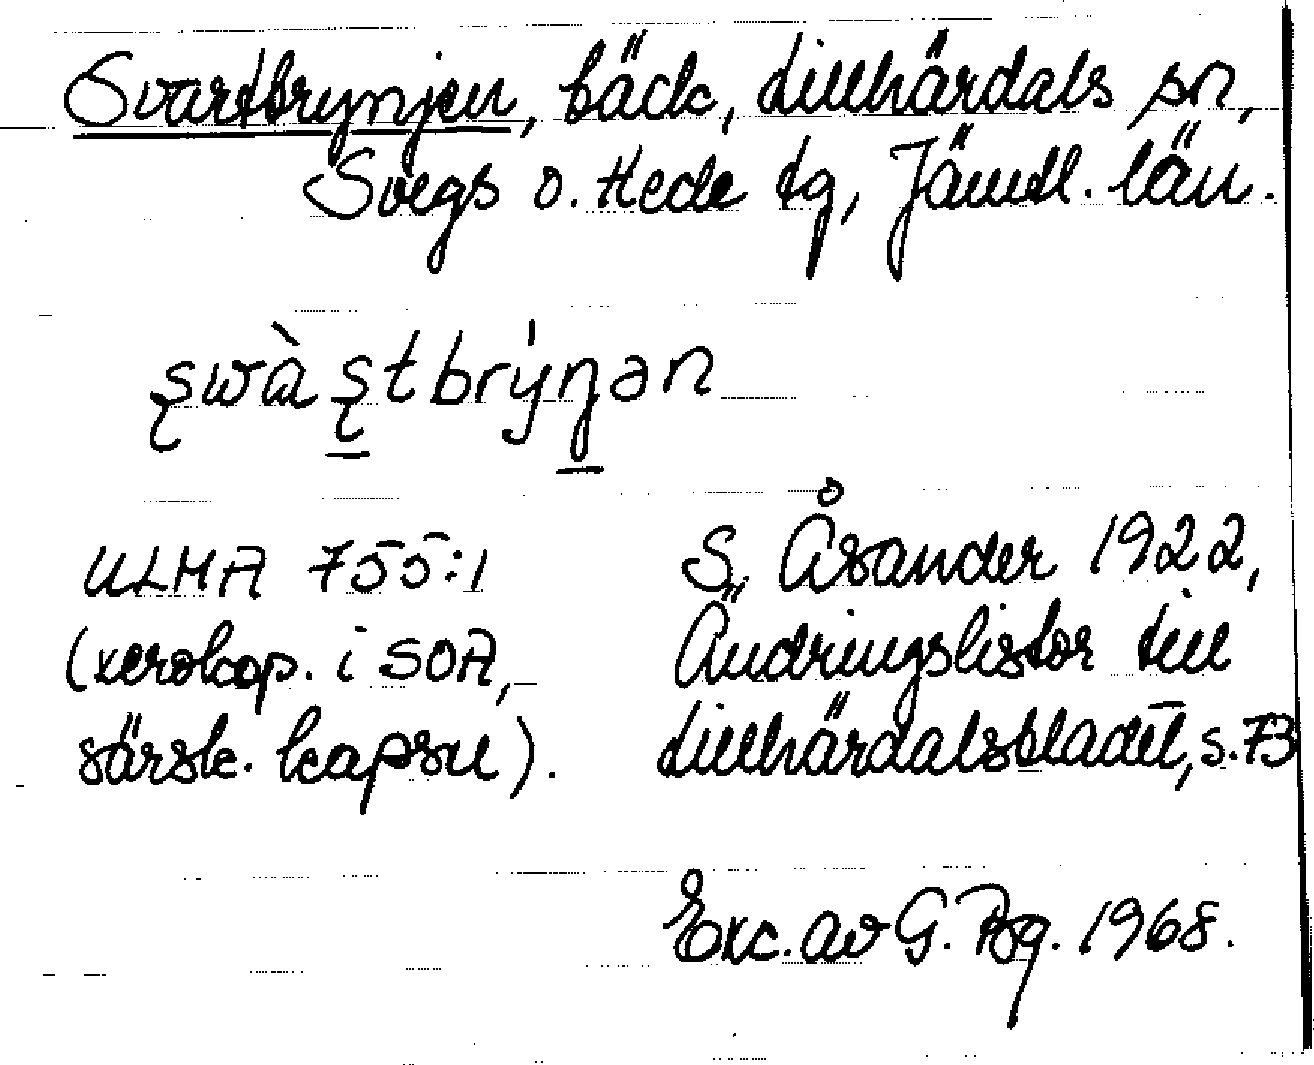 Svartbrynjen, bäck, Lillhärdals sn,
Svegs o. Hede tg, Jämtl. län.
s̨wàs̨tbrýŋən
ULMA 755:1
(xerokop. i SOA,
särsk. kapsel).
S. Åsander 1922,
Ändringslistor till
Lillhärdalsbladet, s. 73
Exc. av G. Pbg. 1968.